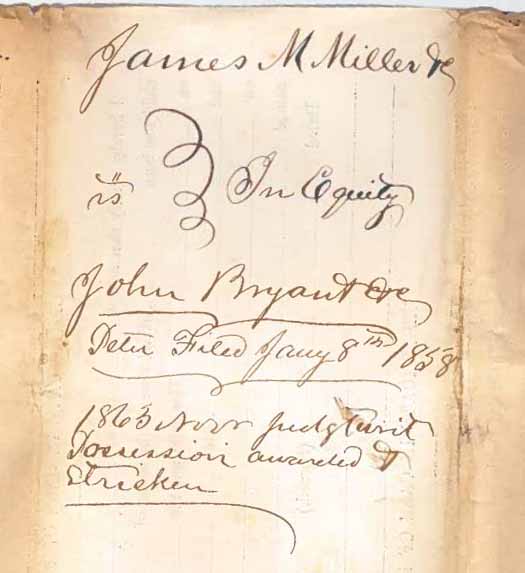 James M Miller &c
vs } In Equity
John Bryant &c
Petn Filed Jany 8th 1858
1863 Novr Judgt writ
Possession awarded &
Stricken